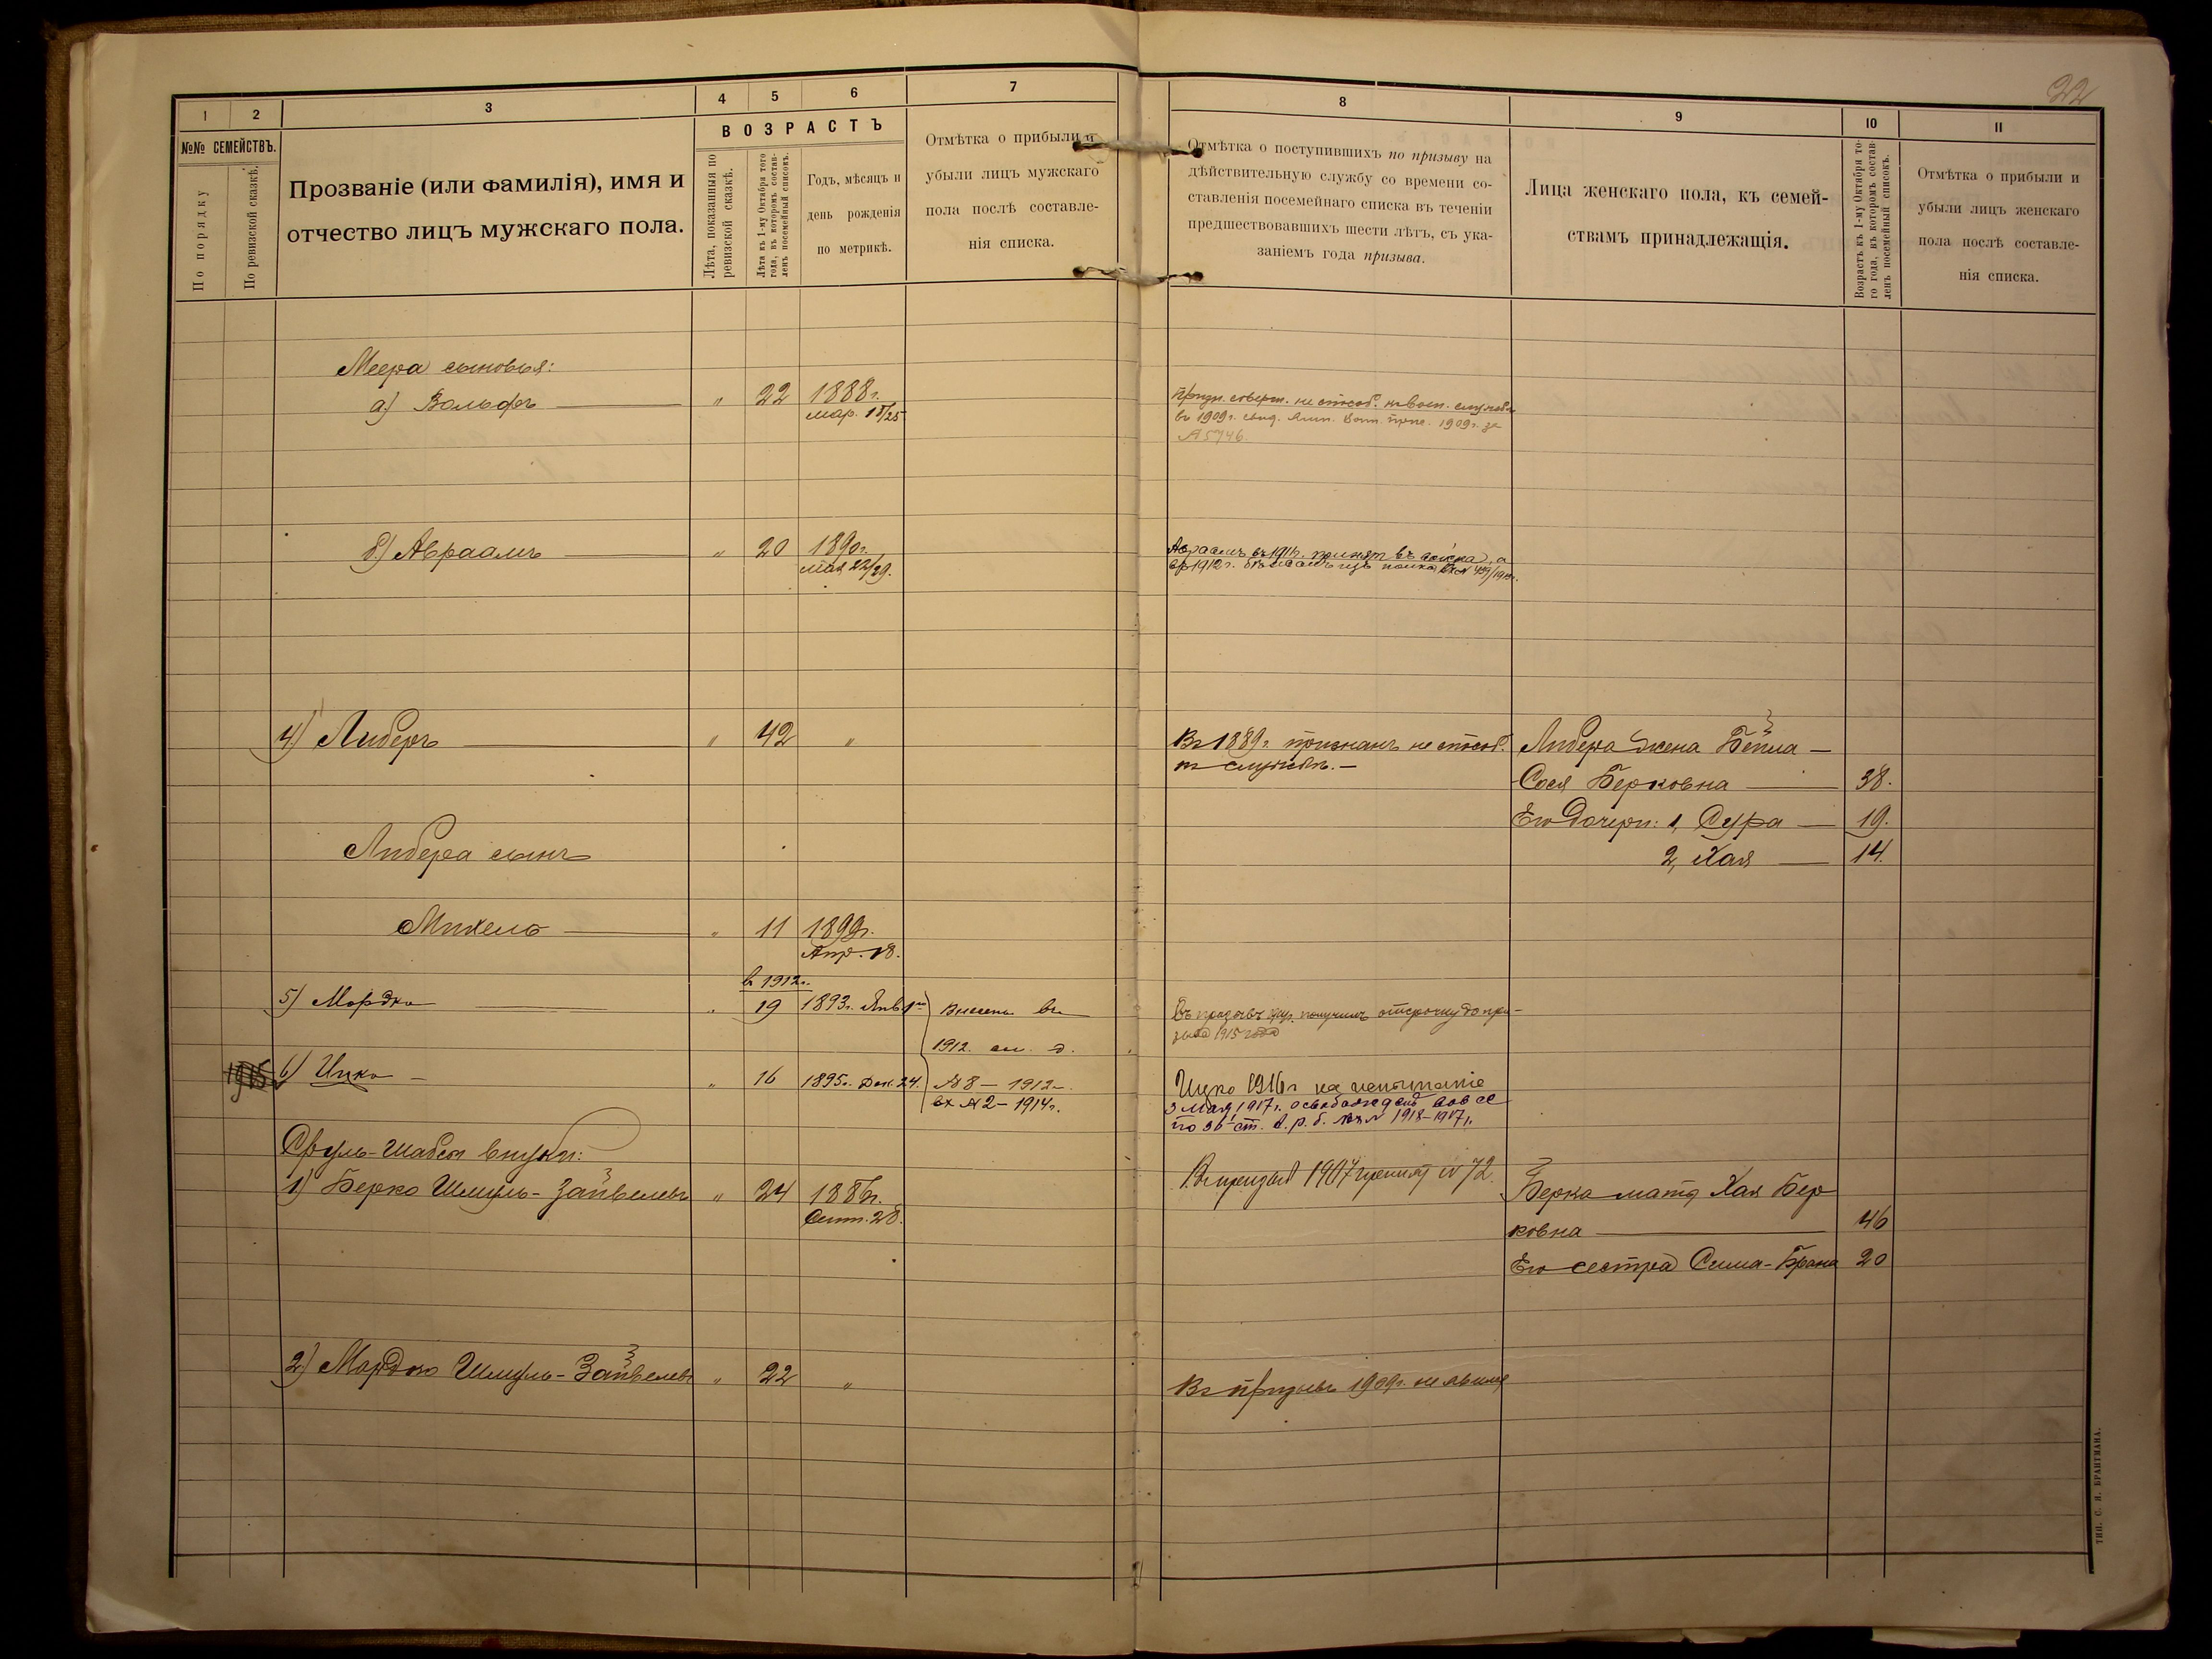 22
1
2
3
4
5
6
7
№№ СЕМЕЙСТВЪ.
По порядку
По ревизской сказкѣ.
Прозваніе (или фамилія), имя и
отчество лицъ мужскаго пола.
ВОЗРАСТЪ
Лѣта, показанныя по
ревизской сказкѣ.
Лѣта къ 1-му Октября того
года, въ которомъ состав-
ленъ посемейный списокъ.
Годъ, мѣсяцъ и
день рожденія
по метрикѣ.
Отмѣтка о прибыли и
убыли лицъ мужскаго
пола послѣ составле-
нія списка.
8
9
10
11
Отмѣтка о поступившихъ по призыву на
дѣйствительную службу со времени со-
ставленія посемейнаго списка въ теченіи
предшествовавшихъ шести лѣтъ, съ ука-
заніемъ года призыва.
Лица женскаго пола, къ семей-
ствамъ принадлежащія.
Возрастъ къ 1-му Октября то-
го года, въ которомъ состав-
ленъ посемейный списокъ.
Отмѣтка о прибыли и
убыли лицъ женскаго
пола послѣ составле-
нія списка.
Меера сыновья:
а) Вольфъ — " 22 1888г.
мар. 18/25
не способ. къ воен. службѣ
въ 1909г. 1909г. за
№ 5746.
б) Авраамъ — " 20 1890г.
мая 22/29.
Авраамъ въ 1911г. принятъ въ войска, а
въ 1912г. бѣжалъ изъ полка
4) Либеръ — " 42 "
Въ 1889г. признанъ не способ.
къ службѣ. —
Либера жена Бейла —
Сося Берковна — 38.
Его дочери: 1, Сура — 19.
2, Хая — 14.
Либера сынъ
Михель — " 11 1899г.
Апр. 18.
в 1912г.
5) Мордко — " 19 1893г. Янв 1го
Внесены въ
1912. сп. д.
№ 8 — 1912г.
вх № 2 — 1914г.
получилъ отсрочку до при-
зыва 1915 года
1915 6) Ицко — " 16 1895г. Дек. 24.
Ицко 1916г на испытаніе
3 мая 1917г. освобожденъ вовсе
по 36 ст. 1918-1917г.
Сруль-Шабса внуки:
1) Берко Шмуль-Зайвелевъ " 24 1886г.
Сент. 28.
Въ призывъ 1907 принятъ № 72.
Берка мать Хая Бер
ковна — 46
Его сестра Сима-Брана 20
2) Мордко Шмуль-Зайвелевъ " 22 "
Въ призывъ 1909г. не явился
ТИП. С. Я. БРАНТМАНА.